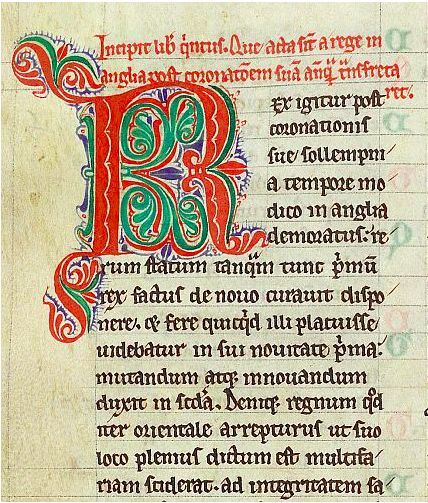 Incipit lib' q'ntus. Que acta sīt a rege in
anglia post coronatōem suā anq̄ t'nsfreta
ret.
REx igitur post
coronationis
sue sollempni
a tempore mo
dico in anglia
demoratus: re
rum statum tanq̄m tunc p'mū
rex factus de nouo curauit dispo
nere. & fere quicq'd illi placuisse
uidebatur in sui nouitate p'ma.
mutandum atq; innouandum
duxit in sc̄da. Deniq; regnum qd̄
iter orientale arrepturus ut suo
loco plenius dictum est multifa
riam sciderat. ad integritatem sa